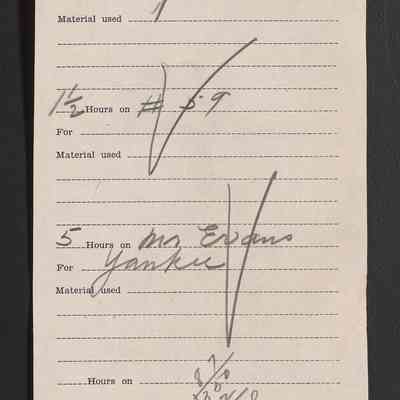 Material used
1½ Hours on # 59
For
Material used
5 Hours on Mr Evans
For Yankee
Material used
Hours on